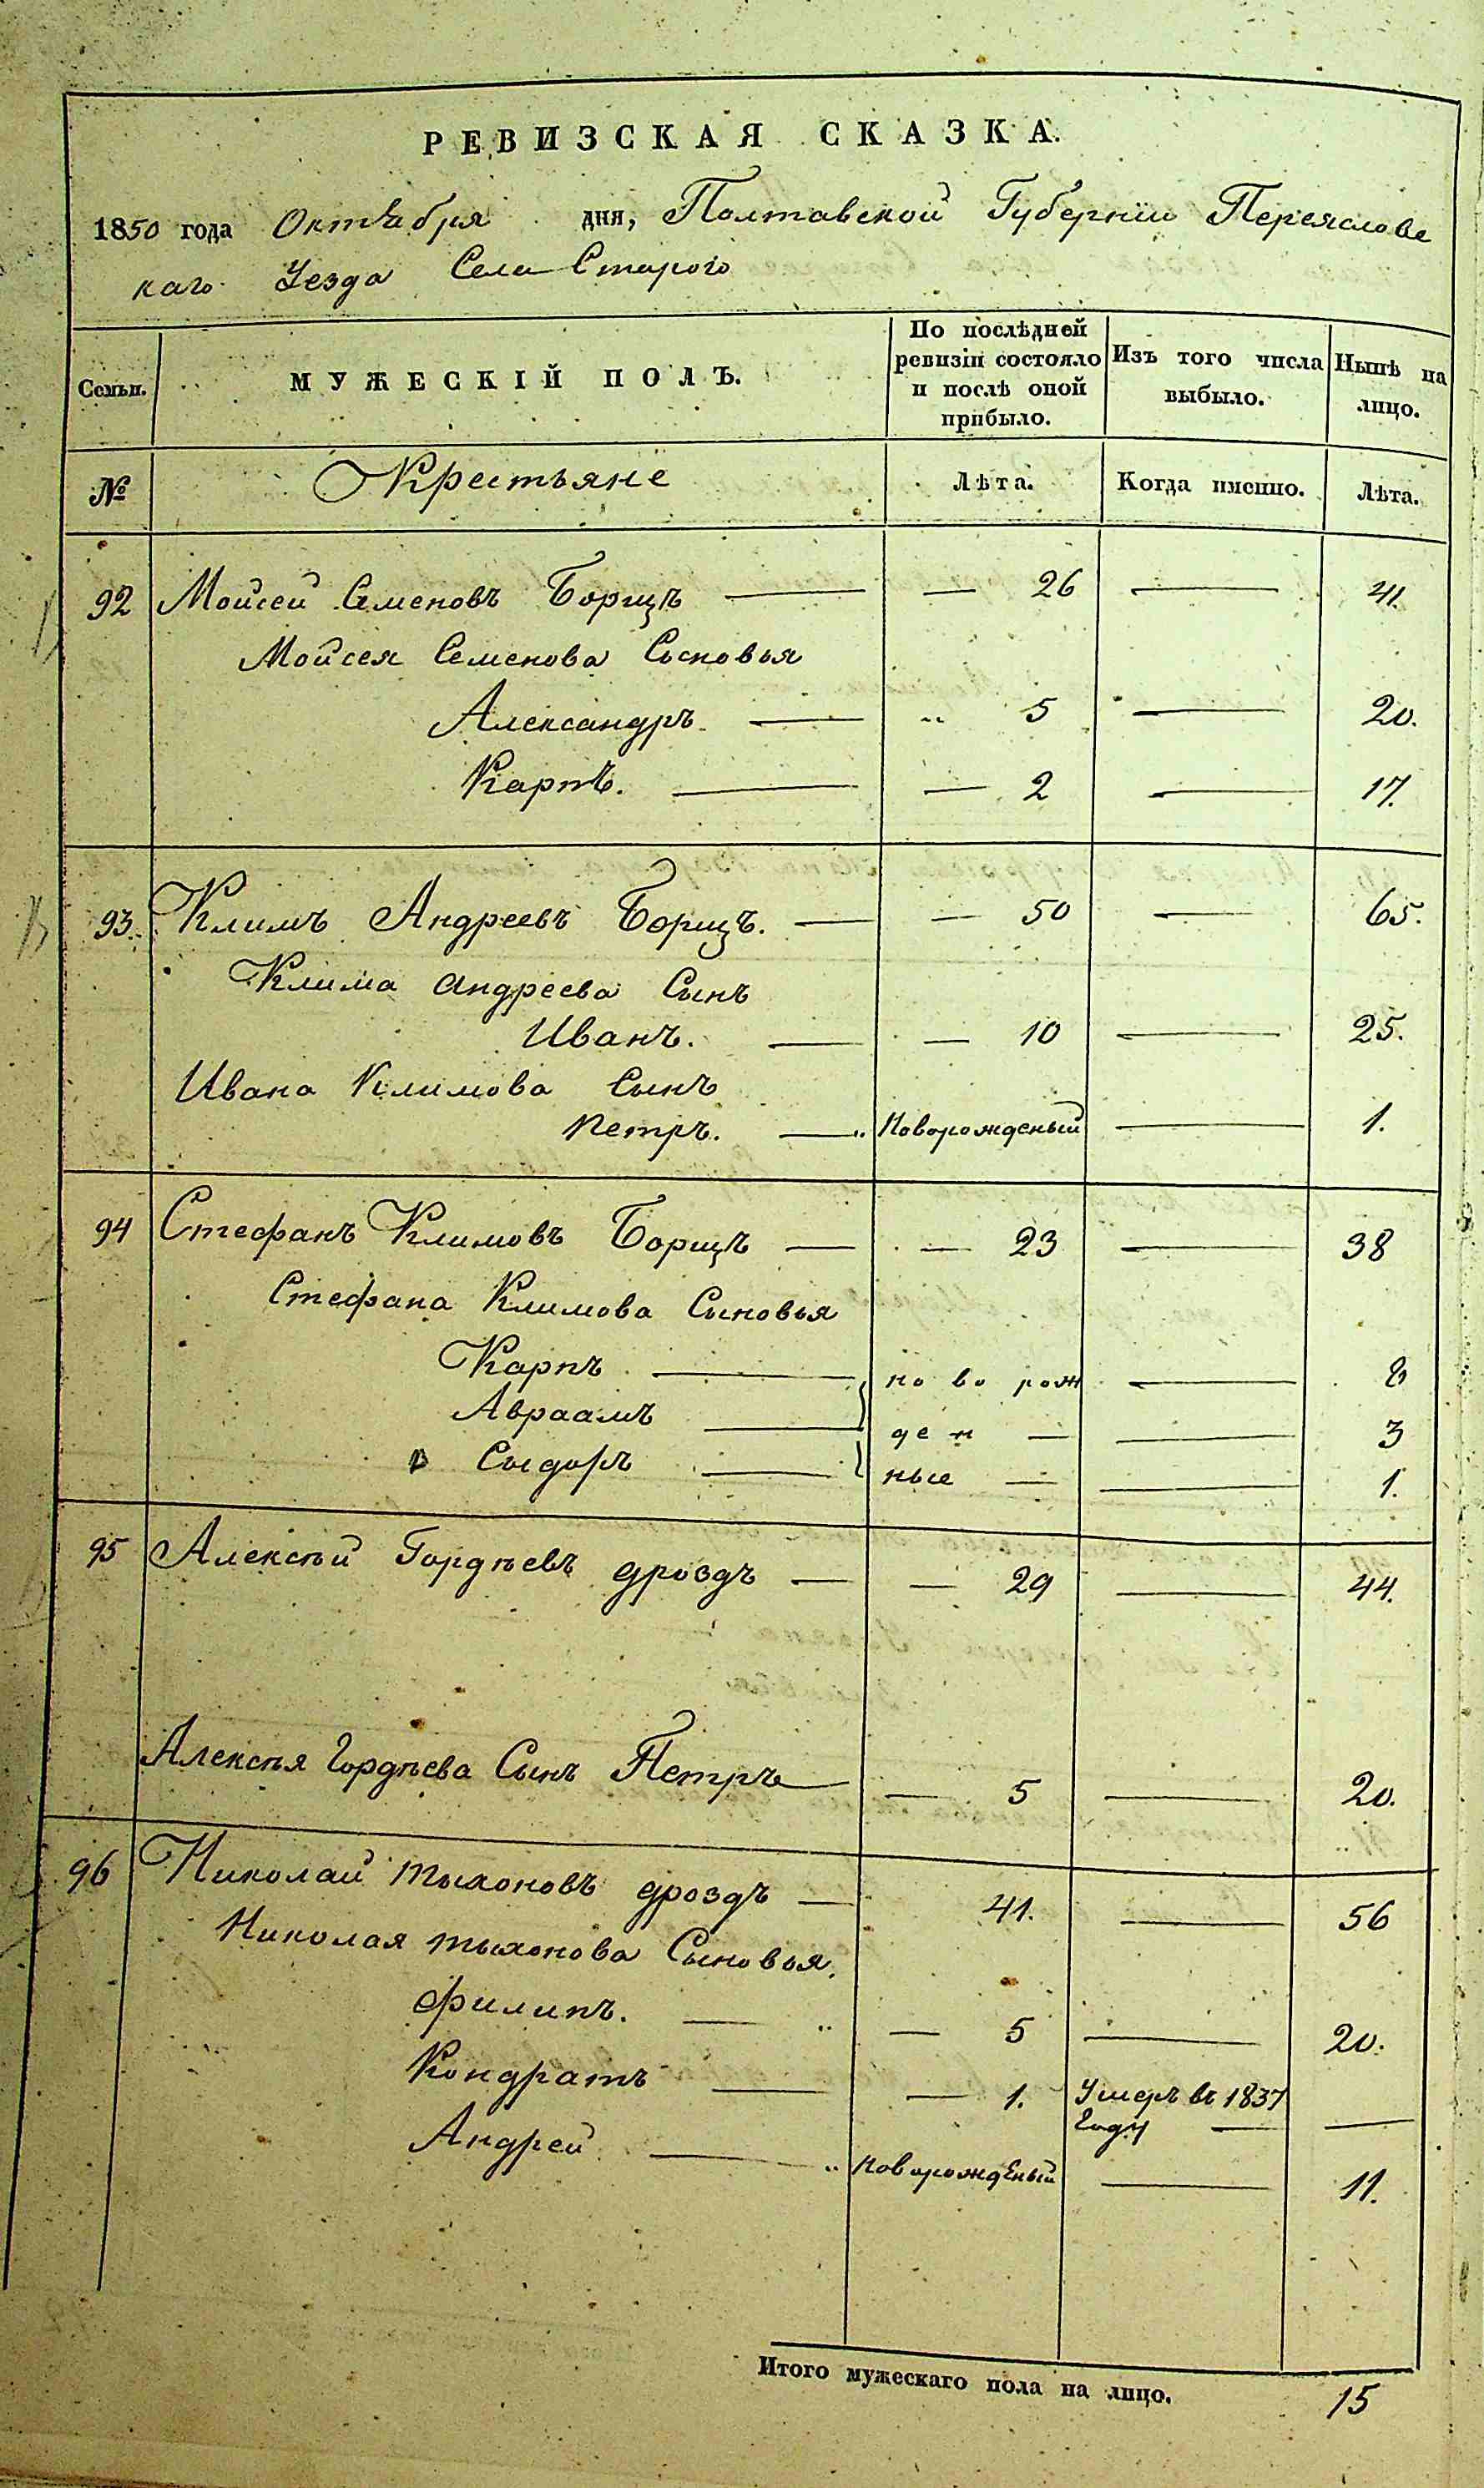 РЕВИЗСКАЯ СКАЗКА.
1850 года Октября дня, Полтавской Губернїи Переяславс
каго Уезда Села Старого
Семьи. МУЖЕСКІЙ ПОЛЪ. По послѣдней ревизіи состояло и послѣ оной прибыло. Изъ того числа выбыло. Нынѣ на лицо.
№ Крестьяне Лѣта. Когда именно. Лѣта.
92 Мойсей Семеновъ Борщъ — — 26 — 41.
Мойсея Семенова Сыновья
Александръ — „ 5 — 20.
Карпъ. — — 2 — 17.
93. Климъ Андреевъ Борщъ. — — 50 — 65.
Клима Андреева Сынъ
Иванъ. — — 10 — 25.
Ивана Климова Сынъ
Петръ. — „ Новорожденый — 1.
94 Стефанъ Климовъ Борщъ — — 23 — 38
Стефана Климова Сыновья
Карпъ — но во рож — 8
Авраамъ — ден — — 3
Сыдоръ — ные — — 1.
95 Алексѣй Гордѣевъ дроздъ — — 29 — 44.
Алексѣя Гордѣева Сынъ Петръ — — 5 — 20.
96 Николай тыхоновъ дроздъ — 41. — 56
Николая тыхонова Сыновья.
Филипъ. — „ — 5 — 20.
Кондратъ — — 1. Умеръ въ 1837
году — —
Андрей — „ Новорожденый — 11.
Итого мужескаго пола на лицо. 15